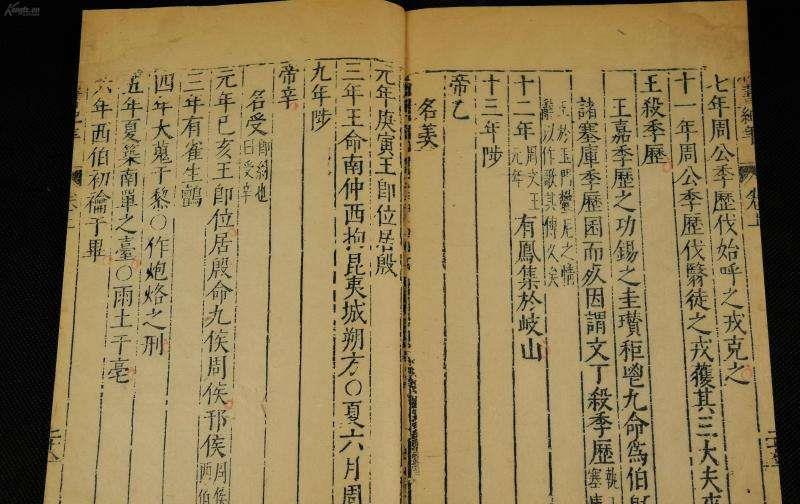 七年周公季歷伐始呼之戎克之
十一年周公季歷伐翳徒之戎獲其三大夫來
王殺季歷
王嘉季歷之功錫之圭瓚秬鬯九命爲伯
諸塞庫季歷困而死因謂文丁殺季歷
十二年
周文王
元年
有鳳集於岐山
十三年陟
帝乙
名羡
元年庚寅王即位居殷
三年王命南仲西拘昆夷城朔方〇夏六月周
九年陟
帝辛
名受
即紂也
曰受辛
元年己亥王即位居殷命九侯周侯邘侯
三年有雀生鸇
四年大蒐于黎〇作炮烙之刑
五年夏築南單之臺〇雨土于亳
六年西伯初禴于畢